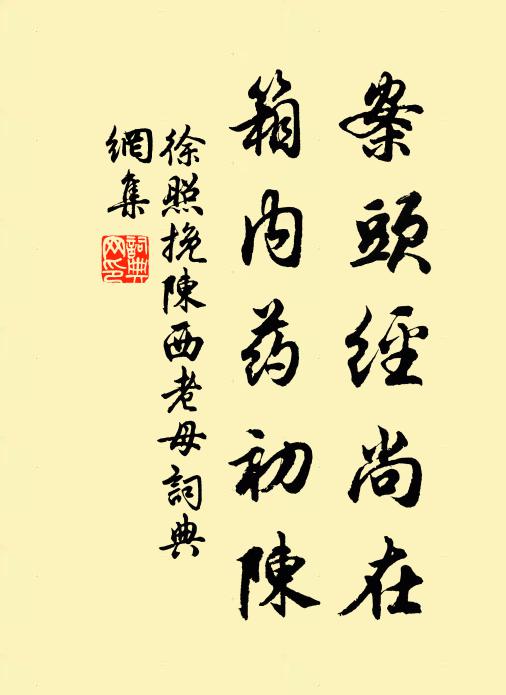 案頭經尚在
箱内药初陳
徐照挽陳西老母詞典
網集
詞典
网印